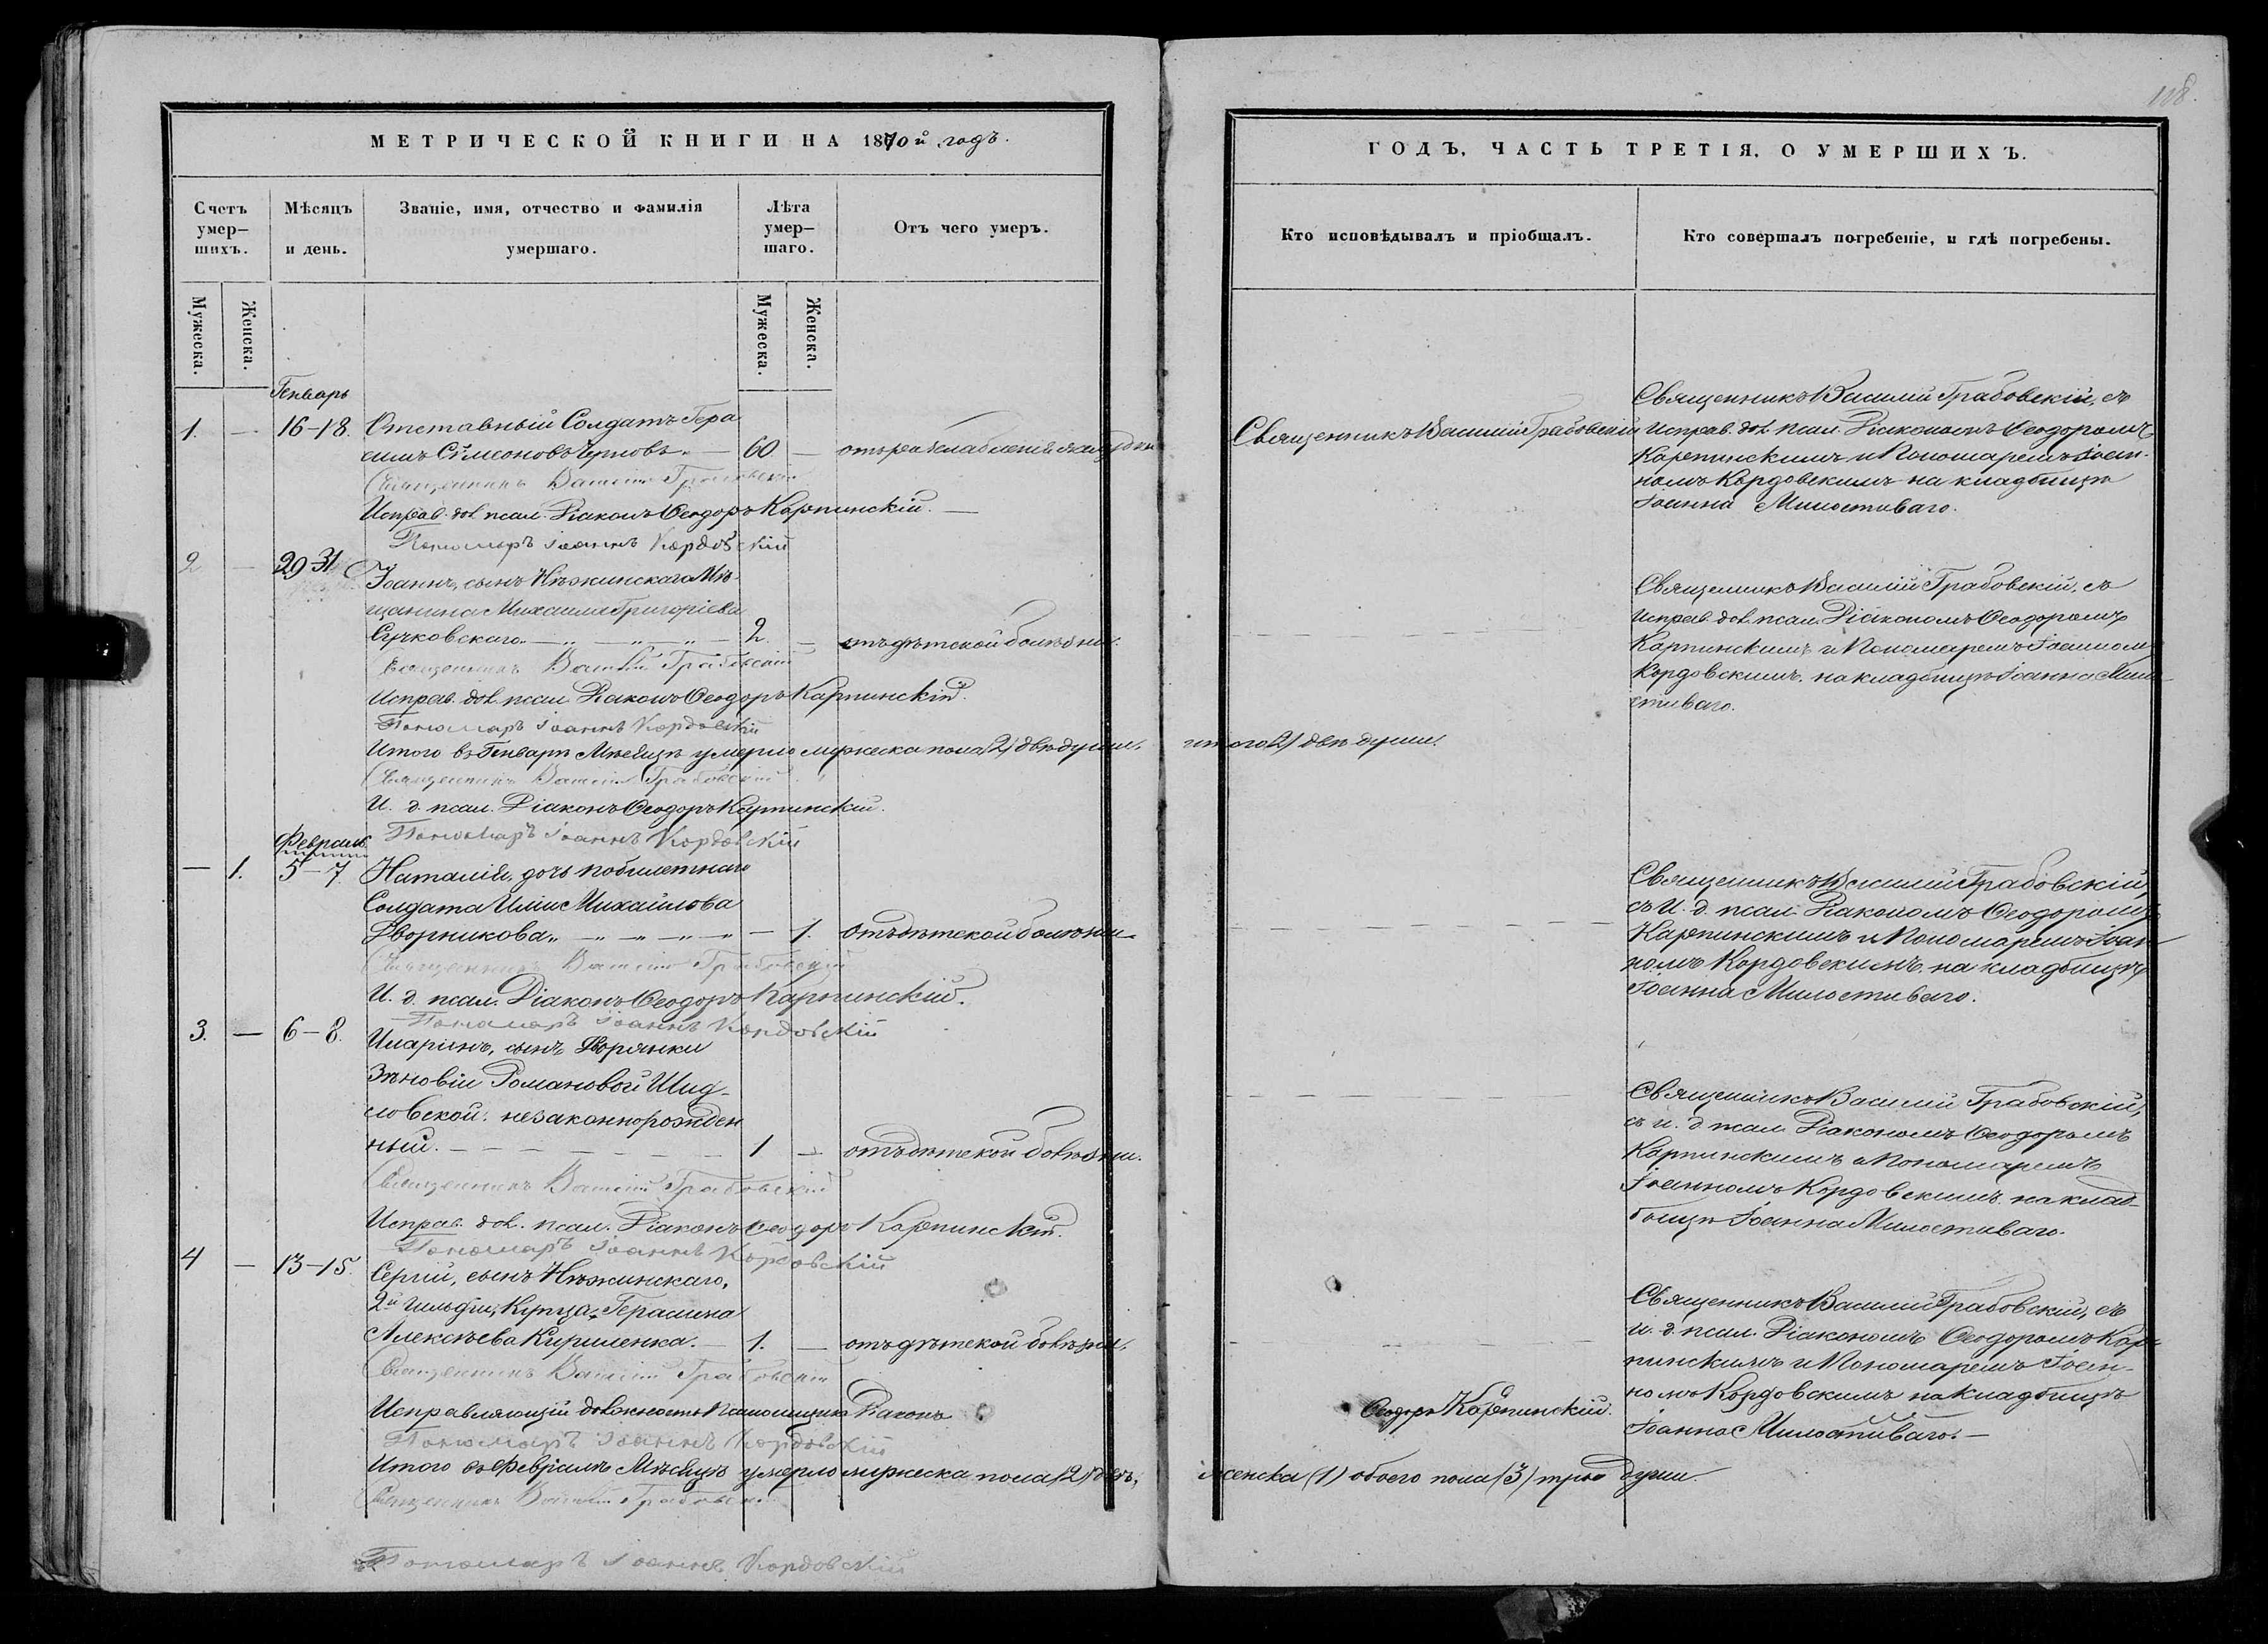 МЕТРИЧЕСКОЙ КНИГИ НА 1870й годъ.
Счетъ умер-шихъ.
Мѣсяцъ и день.
Званіе, имя, отчество и фамилія умершаго.
Лѣта умер-шаго.
Отъ чего умеръ.
Мужеска.
Женска.
Мужеска.
Женска.
Генварь
1. — 16-18. Отставный Солдатъ Гера
симъ Сѵмеоновъ Черновъ. — 60 —
Священникъ Василій Грабовскій
Исправ. дол. псал. Діаконъ Ѳеодоръ Карпинскій. —
Пономаръ Іоаннъ Кордовскій
2 — 29-31 Іоаннъ, сынъ Нѣжинскаго Мѣ-
щанина Михаила Григоріева
Сучковскаго. — 2. — отъ дѣтской болѣзни.
Священникъ Василій Грабовскій
Исправ. дол. псал. Діаконъ Ѳеодоръ Карпинскій.
Пономаръ Іоаннъ Кордовскій
Итого въ Генварѣ Мѣсяцѣ умерло мужеска пола (2) двѣ души.
Священникъ Василій Грабовскій
И. д. псал. Діаконъ Ѳеодоръ Карпинскій.
Пономаръ Іоаннъ Кордовскій
Февраль
— 1. 5-7. Наталія, дочь побилетнаго
Солдата Иліи Михайлова
Дворникова „ — „ — „ — 1. отъ дѣтской болѣзни
Священникъ Василій Грабовскій
И. д. псал. Діаконъ Ѳеодоръ Карпинскій.
Пономаръ Іоаннъ Кордовскій
3. — 6-8. Иларіонъ, сынъ Дворянки
Зѣновіи Романовой Шид-
ловской, незаконнорожден
ный. — 1 — отъ дѣтской болѣзни.
Священникъ Василій Грабовскій
Исправ. дол. псал. Діаконъ Ѳеодоръ Карпинскій.
Пономаръ Іоаннъ Кордовскій
4 — 13-15. Сергій, сынъ Нѣжинскаго,
2й гильдіи, Купца, Герасима
Алексѣева Кириленка. — 1. — отъ дѣтской болѣзни.
Священникъ Василій Грабовскій
Исправляющій должность Псаломщика Діаконъ
Пономаръ Іоаннъ Кордовскій
Итого въ Февралѣ Мѣсяцѣ умерло мужеска пола (2) двѣ,
Священникъ Василій Грабовскій
Пономаръ Іоаннъ Кордовскій
118.
ГОДЪ, ЧАСТЬ ТРЕТІЯ, О УМЕРШИХЪ.
Кто исповѣдывалъ и пріобщалъ.
Кто совершалъ погребеніе, и гдѣ погребены.
Священникъ Василій Грабовскій
Священникъ Василій Грабовскій, съ
Исправ. дол. псал. Діакономъ Ѳеодоромъ
Карпинскимъ и Пономаремъ Іоан-
номъ Кордовскимъ на кладбищѣ
Іоанна Милостиваго.
Священникъ Василій Грабовскій, съ
Исправ. дол. псал. Діакономъ Ѳеодоромъ
Карпинскимъ и Пономаремъ Іоанномъ
Кордовскимъ, на кладбищѣ Іоанна Мило
стиваго.
итого (2) двѣ души.
Священникъ Василій Грабовскій,
съ И. д. псал. Діакономъ Ѳеодоромъ
Карпинскимъ и Пономаремъ Іоан-
номъ Кордовскимъ, на кладбищѣ
Іоанна Милостиваго.
Священникъ Василій Грабовскій,
съ и. д. псал. Діакономъ Ѳеодоромъ
Карпинскимъ и Пономаремъ
Іоанномъ Кордовскимъ, на клад-
бищѣ Іоанна Милостиваго.
Священникъ Василій Грабовскій, съ
и. д. псал. Діакономъ Ѳеодоромъ Кар-
пинскимъ и Пономаремъ Іоан-
номъ Кордовскимъ на Кладбищѣ
Іоанна Милостиваго. —
Ѳеодоръ Карпинскій.
женска (1) обоего пола (3) три души.